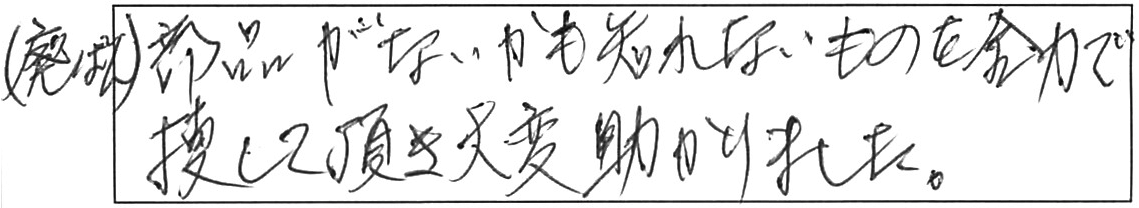 (廃盤)部品がないかも知れないものを全力で
捜して頂き大変助かりました。